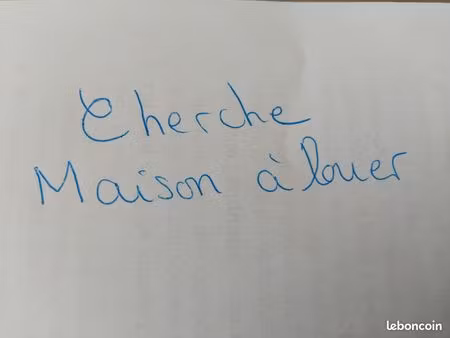 Cherche
Maison à louer
leboncoin